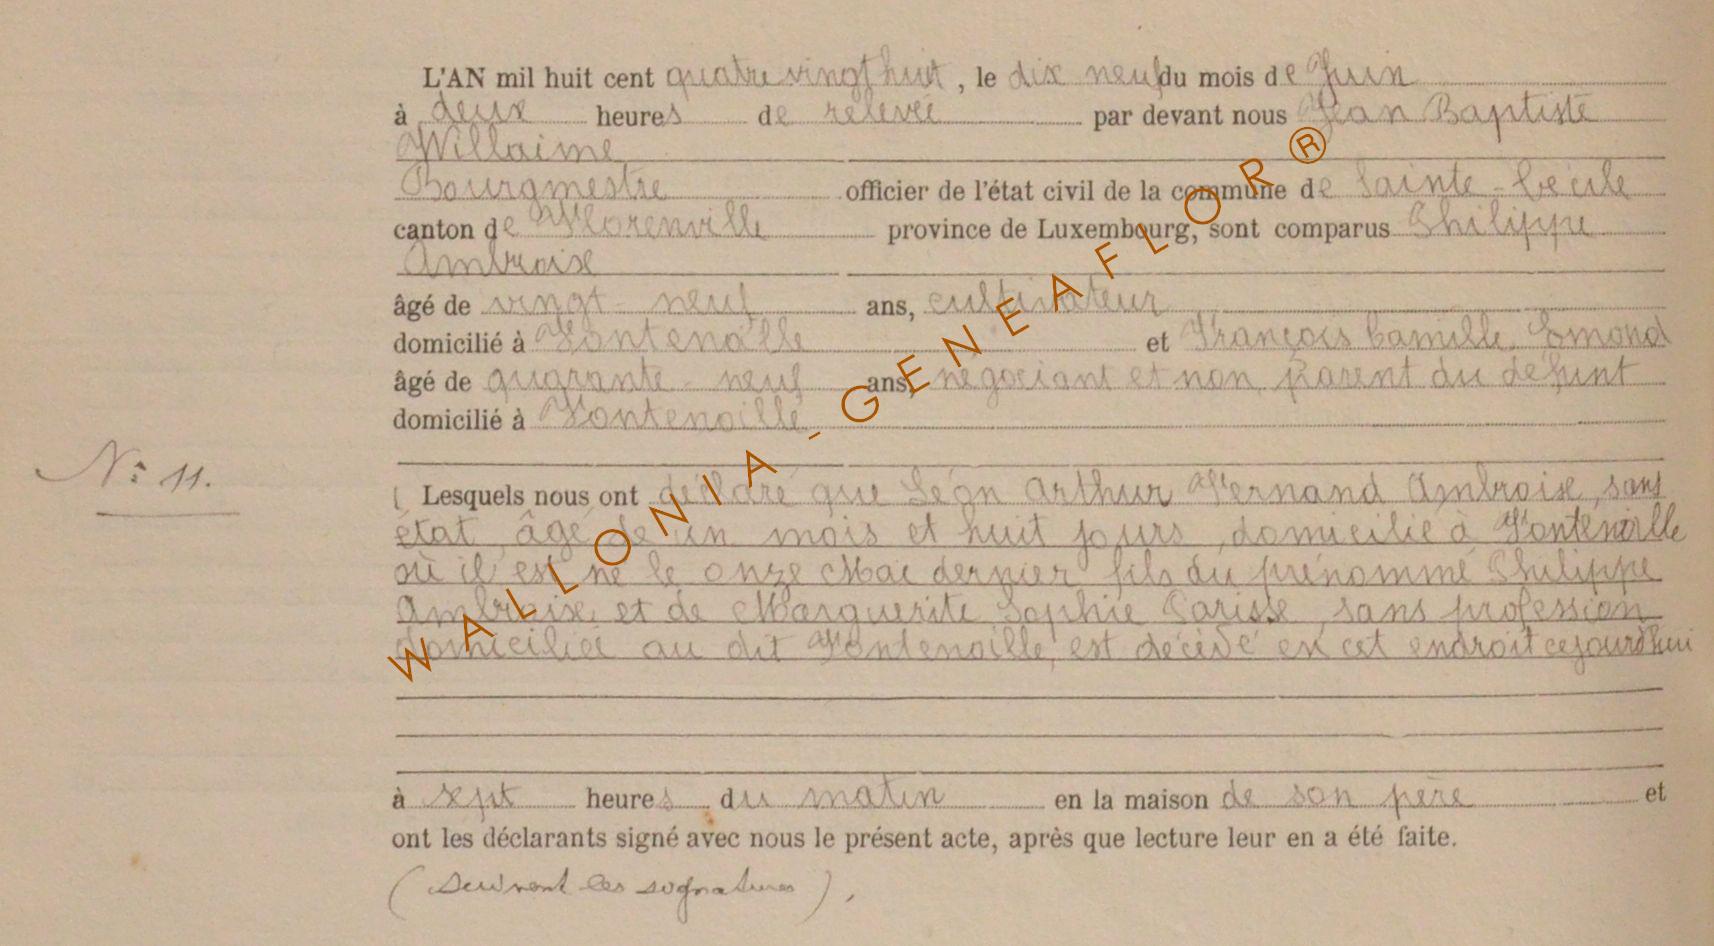 L'AN mil huit cent quatre vingt huit, le dix neuf du mois de Juin
à deux heures de relevée par devant nous Jean Baptiste
Willaime
Bourgmestre officier de l'état civil de la commune de Sainte-Cécile
canton de Florenville province de Luxembourg, sont comparus Philippe
Ambroise
âgé de vingt-neuf ans, cultivateur
domicilié à Fontenoille et François Camille Emond
âgé de quarante-neuf ans, négociant et non parent du défunt
domicilié à Fontenoille
N° 11.
Lesquels nous ont déclaré que Léon Arthur Fernand Ambroise, sans
état, âgé de un mois et huit jours, domicilié à Fontenoille
où il est né le onze Mai dernier fils du prénommé Philippe
Ambroise, et de Marguerite Sophie Parisse, sans profession
domiciliée au dit Fontenoille, est décédé en cet endroit cejourd'hui
à sept heures du matin en la maison de son père et
ont les déclarants signé avec nous le présent acte, après que lecture leur en a été faite.
(Suivent les signatures).
WALLONIA-GENEAFLOR®